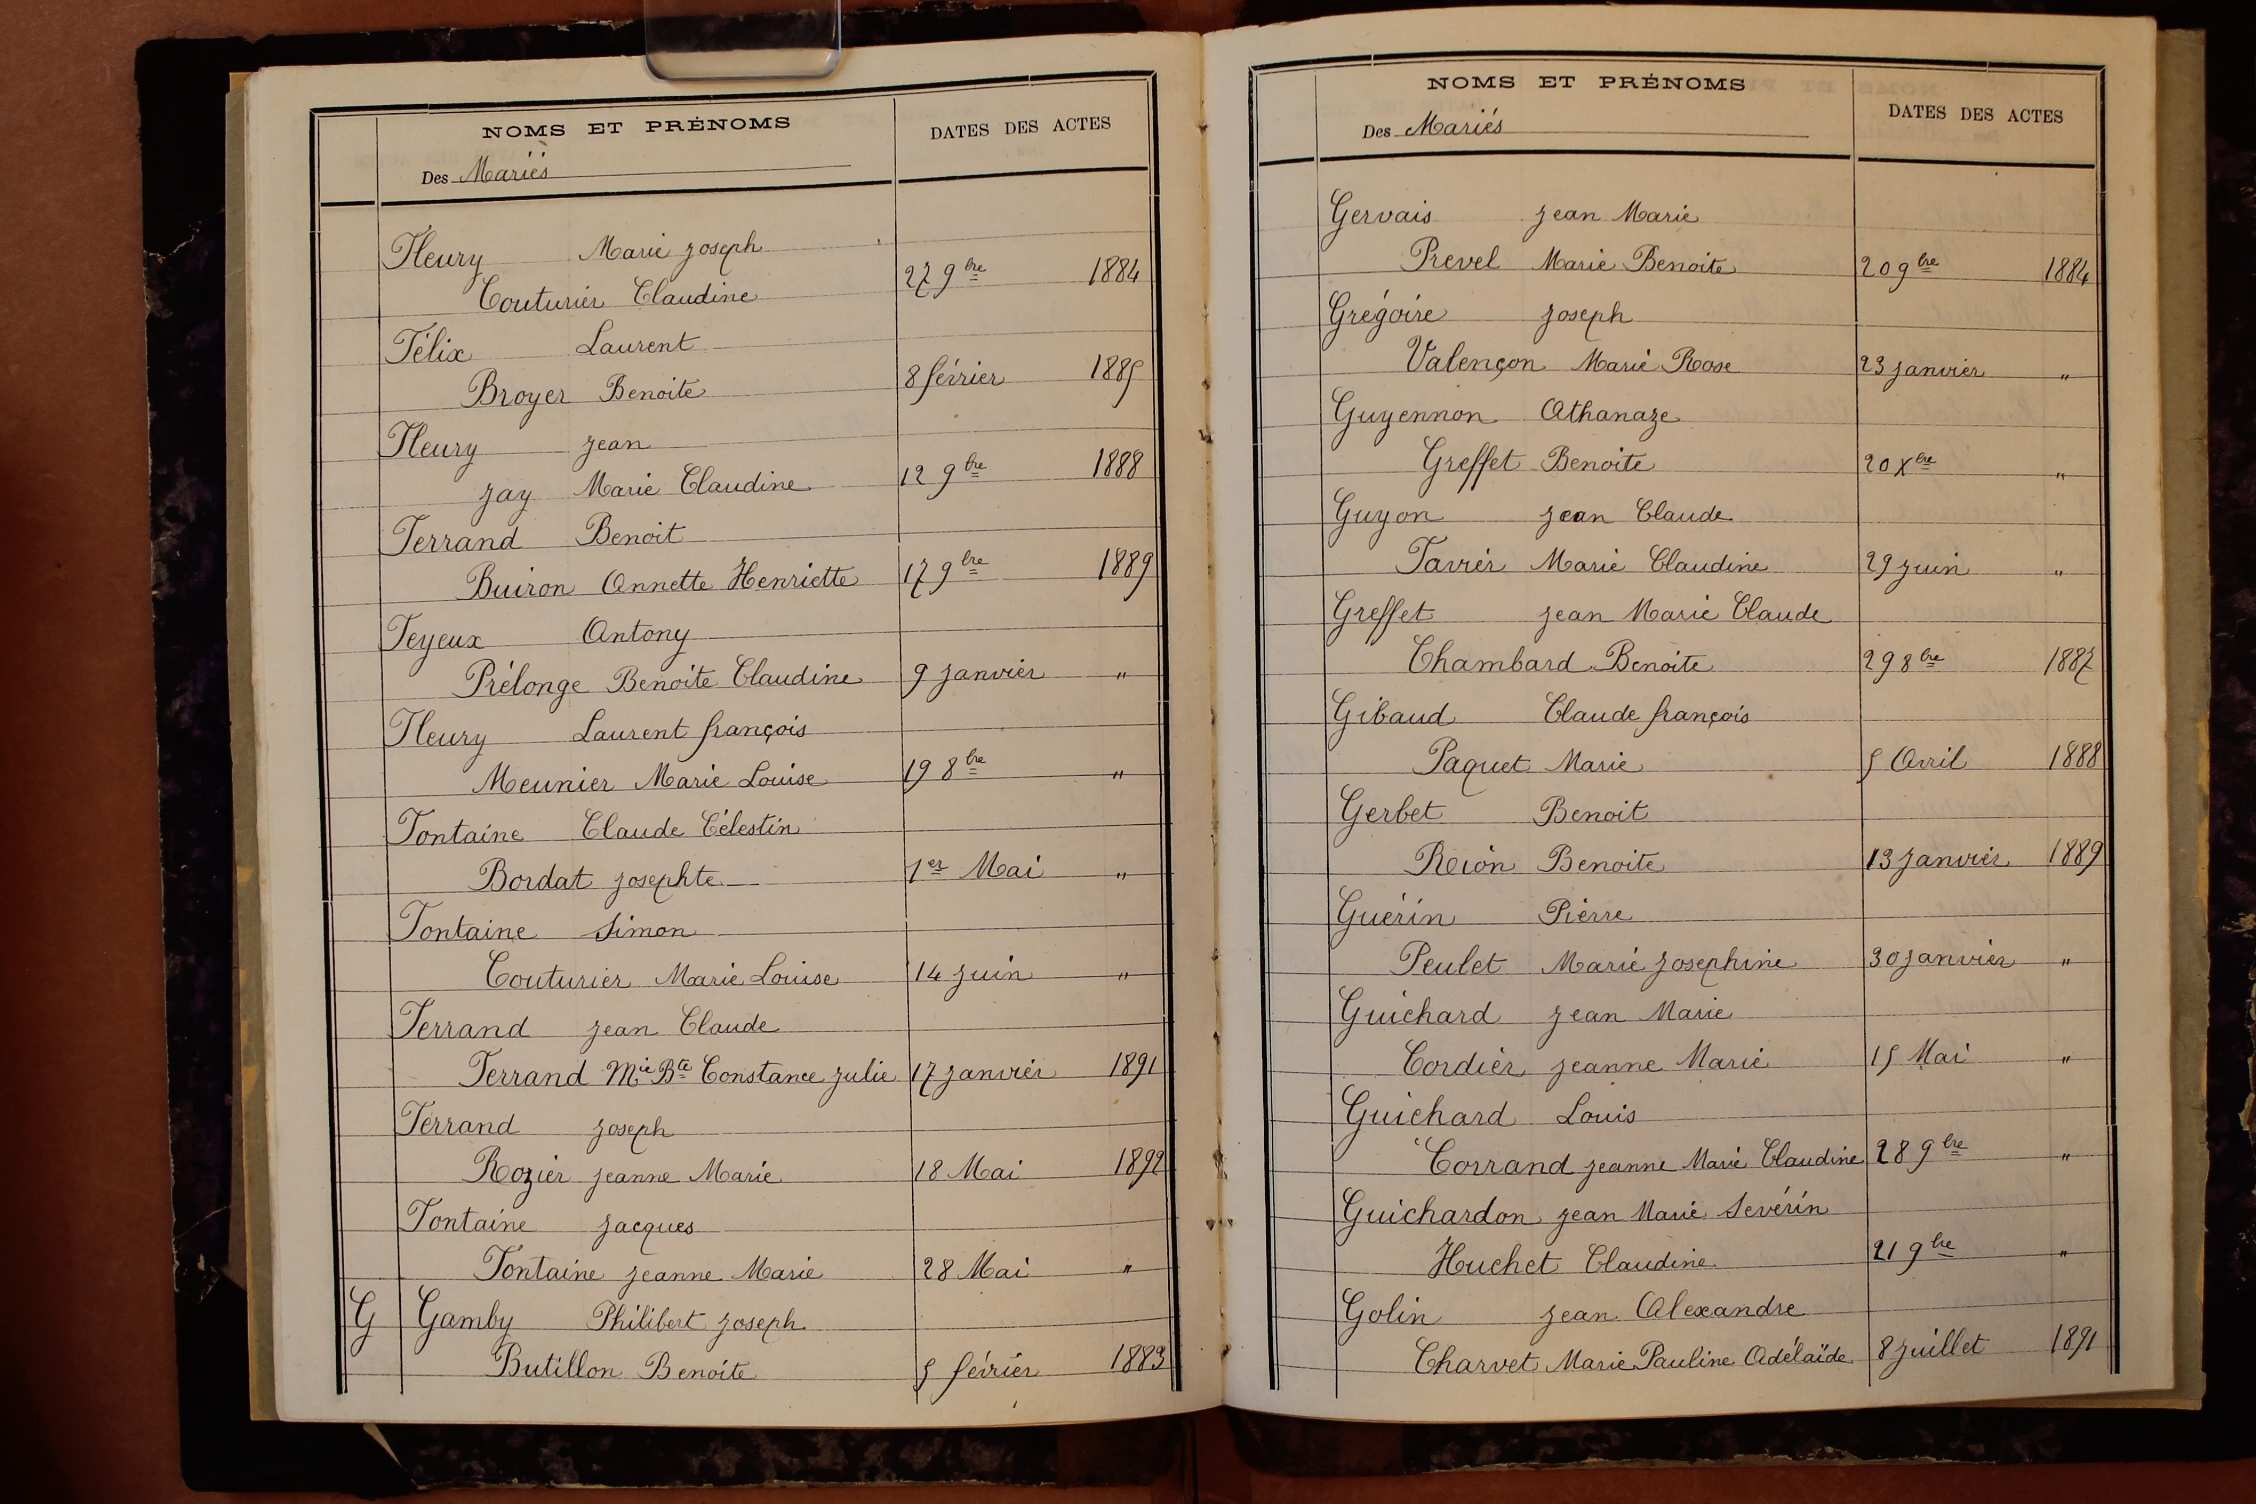 NOMS ET PRÉNOMS
DATES DES ACTES
Des Mariés
Fleury Marie Joseph
Couturier Claudine 27 9bre 1884
Félix Laurent
Broyer Benoite 8 février 1885
Fleury Jean
Jay Marie Claudine 12 9bre 1888
Ferrand Benoit
Buiron Annette Henriette 17 9bre 1889
Feyeux Antony
Prélonge Benoite Claudine 9 Janvier "
Fleury Laurent françois
Meunier Marie Louise 19 8bre "
Fontaine Claude Célestin
Bordat Josephte 1er Mai "
Fontaine Simon
Couturier Marie Louise 14 Juin "
Ferrand Jean Claude
Ferrand Mie Bte Constance Julie 17 Janvier 1891
Ferrand Joseph
Rozier Jeanne Marie 18 Mai 1892
Fontaine Jacques
Fontaine Jeanne Marie 28 Mai "
G Gamby Philibert Joseph
Butillon Benoite 5 février 1883
NOMS ET PRÉNOMS
DATES DES ACTES
Des Mariés
Gervais Jean Marie
Prevel Marie Benoite 20 9bre 1884
Grégoire Joseph
Valençon Marie Rose 23 Janvier "
Guyennon Athanaze
Greffet Benoite 20 Xbre "
Guyon Jean Claude
Favier Marie Claudine 29 Juin "
Greffet Jean Marie Claude
Chambard Benoite 29 8bre 1887
Gibaud Claude françois
Paquet Marie 5 Avril 1888
Gerbet Benoit
Reion Benoite 13 Janvier 1889
Guérin Pierre
Peulet Marie Josephine 30 Janvier "
Guichard Jean Marie
Cordier Jeanne Marie 15 Mai "
Guichard Louis
Corrand Jeanne Marie Claudine 28 9bre "
Guichardon Jean Marie Sevérin
Huchet Claudine 21 9bre "
Golin Jean Alexandre
Charvet Marie Pauline Adélaïde 8 Juillet 1891